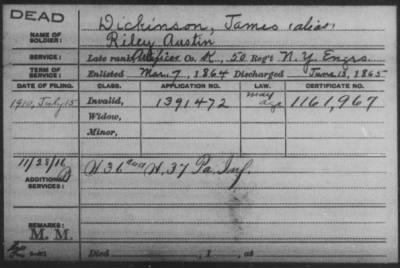 DEAD
NAME OF SOLDIER: Dickinson, James (alias)
Riley Austin
SERVICE: Late rank Artificer Co. K, 50 Reg't N.Y. Engrs.
TERM OF SERVICE: Enlisted Mar. 7, 1864 Discharged June 13, 1865
DATE OF FILING. CLASS. APPLICATION NO. LAW. CERTIFICATE NO.
1910, July 15 Invalid, 1391472 1161,967
Widow,
Minor,
ADDITIONAL SERVICES: H 36 H. 37 Pa. Inf.
REMARKS:
M. M.
Died , 1 , at